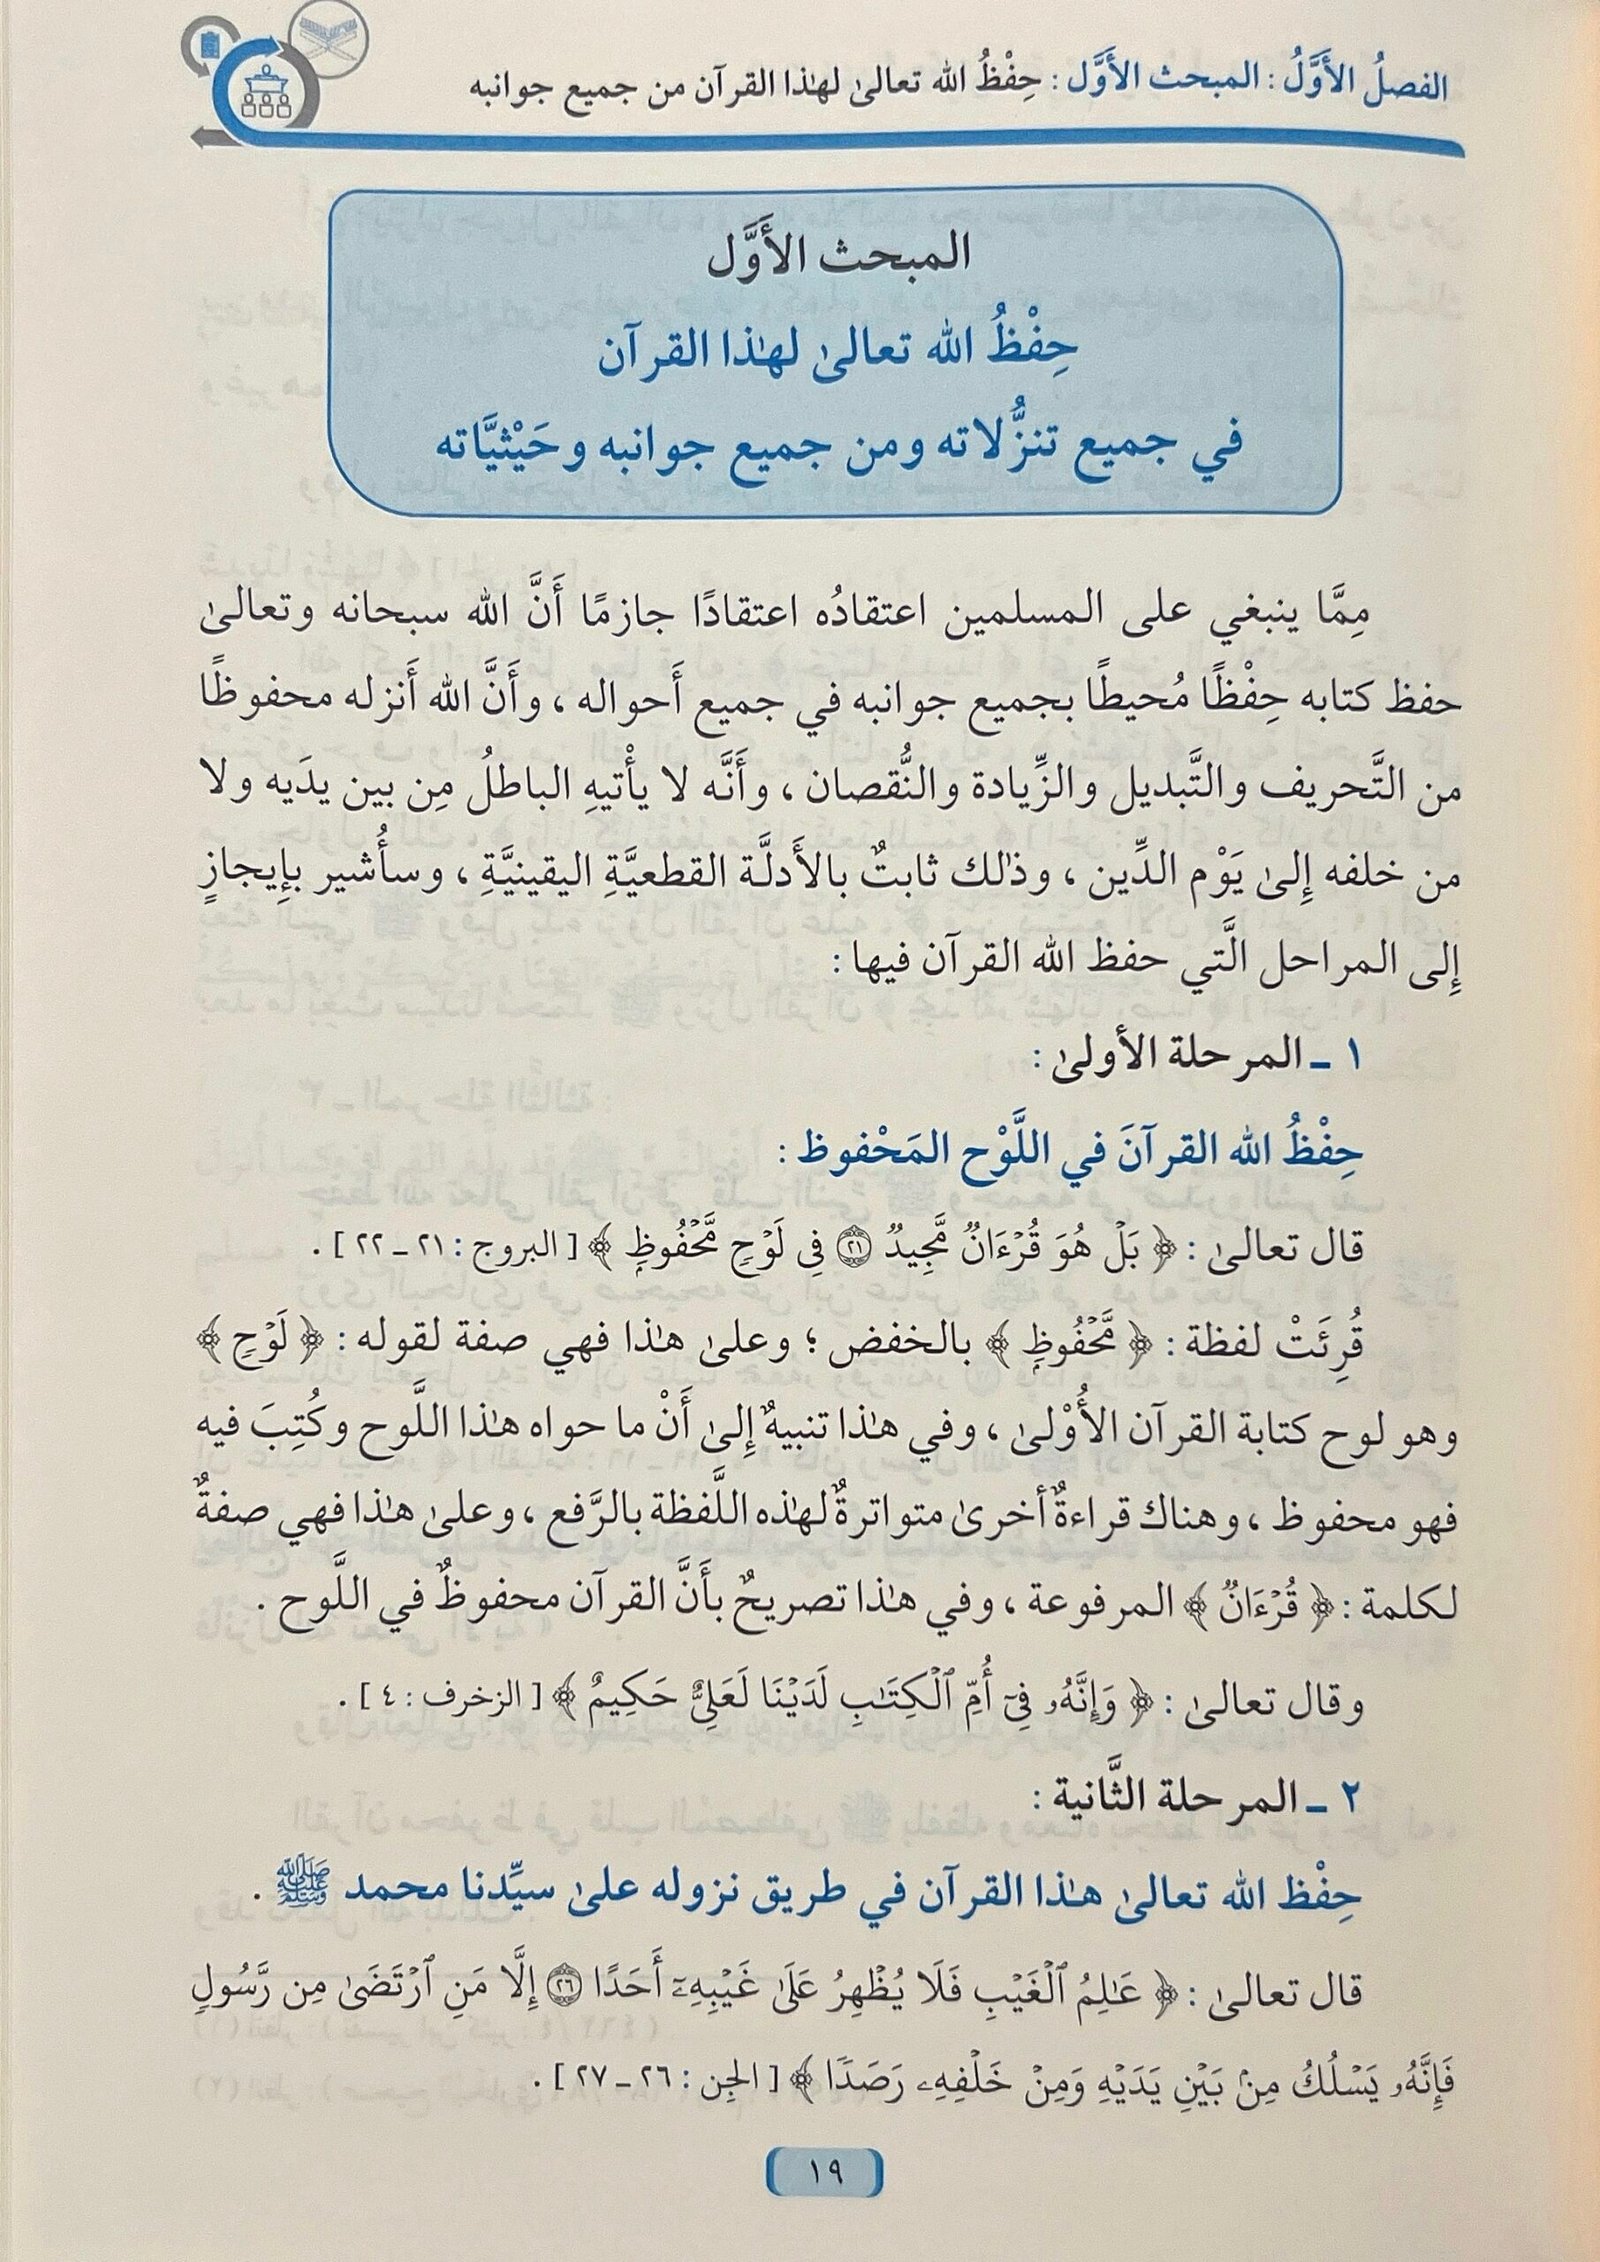 الفصلُ الأَوَّلُ : المبحث الأَوَّل : حِفْظُ الله تعالىٰ لهٰذا القرآن من جميع جوانبه
المبحث الأَوَّل
حِفْظُ الله تعالىٰ لهٰذا القرآن
في جميع تنزُّلاته ومن جميع جوانبه وحَيْثيَّاته
مِمَّا ينبغي على المسلمين اعتقادُه اعتقادًا جازمًا أَنَّ الله سبحانه وتعالىٰ
حفظ كتابه حِفْظًا مُحيطًا بجميع جوانبه في جميع أَحواله ، وأَنَّ الله أَنزله محفوظًا
من التَّحريف والتَّبديل والزِّيادة والنُّقصان ، وأَنَّه لا يأْتيهِ الباطلُ مِن بين يدَيه ولا
من خلفه إِلىٰ يَوْم الدِّين ، وذٰلك ثابتٌ بالأَدلَّة القطعيَّةِ اليقينيَّةِ ، وسأُشير بإِيجازٍ
إِلى المراحل الَّتي حفظ الله القرآن فيها :
١ ـ المرحلة الأولىٰ :
حِفْظُ الله القرآنَ في اللَّوْح المَحْفوظ :
قال تعالىٰ : ﴿ بَلْ هُوَ قُرْءَانٌ مَّجِيدٌ ٢١ فِى لَوْحٍ مَّحْفُوظٍۭ ﴾ [ البروج : ٢١ ـ ٢٢ ] .
قُرِئَتْ لفظة : ﴿ مَّحْفُوظٍۭ ﴾ بالخفض ؛ وعلىٰ هٰذا فهي صفة لقوله : ﴿ لَوْحٍ ﴾
وهو لوح كتابة القرآن الأُوْلىٰ ، وفي هٰذا تنبيهٌ إِلىٰ أَنْ ما حواه هٰذا اللَّوح وكُتِبَ فيه
فهو محفوظ ، وهناك قراءةٌ أخرىٰ متواترةٌ لهٰذه اللَّفظة بالرَّفع ، وعلىٰ هٰذا فهي صفةٌ
لكلمة : ﴿ قُرْءَانٌ ﴾ المرفوعة ، وفي هٰذا تصريحٌ بأَنَّ القرآن محفوظٌ في اللَّوح .
وقال تعالىٰ : ﴿ وَإِنَّهُۥ فِىٓ أُمِّ ٱلْكِتَٰبِ لَدَيْنَا لَعَلِىٌّ حَكِيمٌ ﴾ [ الزخرف : ٤ ] .
٢ ـ المرحلة الثَّانية :
حِفْظ الله تعالىٰ هٰذا القرآن في طريق نزوله علىٰ سيِّدنا محمد ﷺ .
قال تعالىٰ : ﴿ عَٰلِمُ ٱلْغَيْبِ فَلَا يُظْهِرُ عَلَىٰ غَيْبِهِۦٓ أَحَدًا ٢٦ إِلَّا مَنِ ٱرْتَضَىٰ مِن رَّسُولٍ
فَإِنَّهُۥ يَسْلُكُ مِنۢ بَيْنِ يَدَيْهِ وَمِنْ خَلْفِهِۦ رَصَدًا ﴾ [ الجن : ٢٦ ـ ٢٧ ] .
١٩